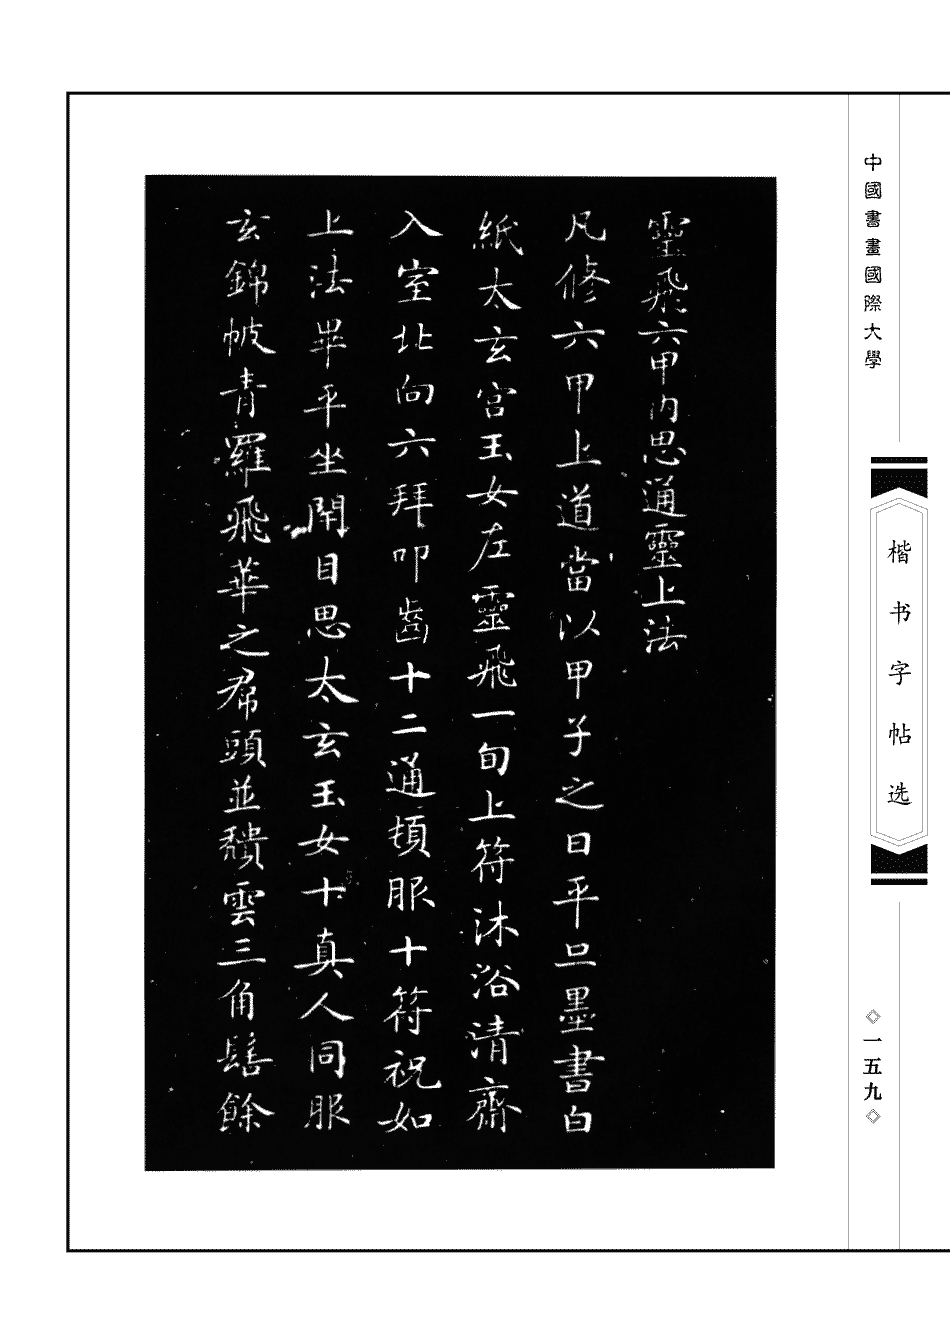 中國書畫國際大學
楷书字帖选
一五九
靈飛六甲內思通靈上法
凡修六甲上道當以甲子之日平旦墨書白
紙太玄宮玉女左靈飛一旬上符沐浴清齋
入室北向六拜叩齒十二通頓服十符祝如
上法畢平坐閉目思太玄玉女十真人同服
玄錦帔青羅飛華之帬頭並頹雲三角髻餘